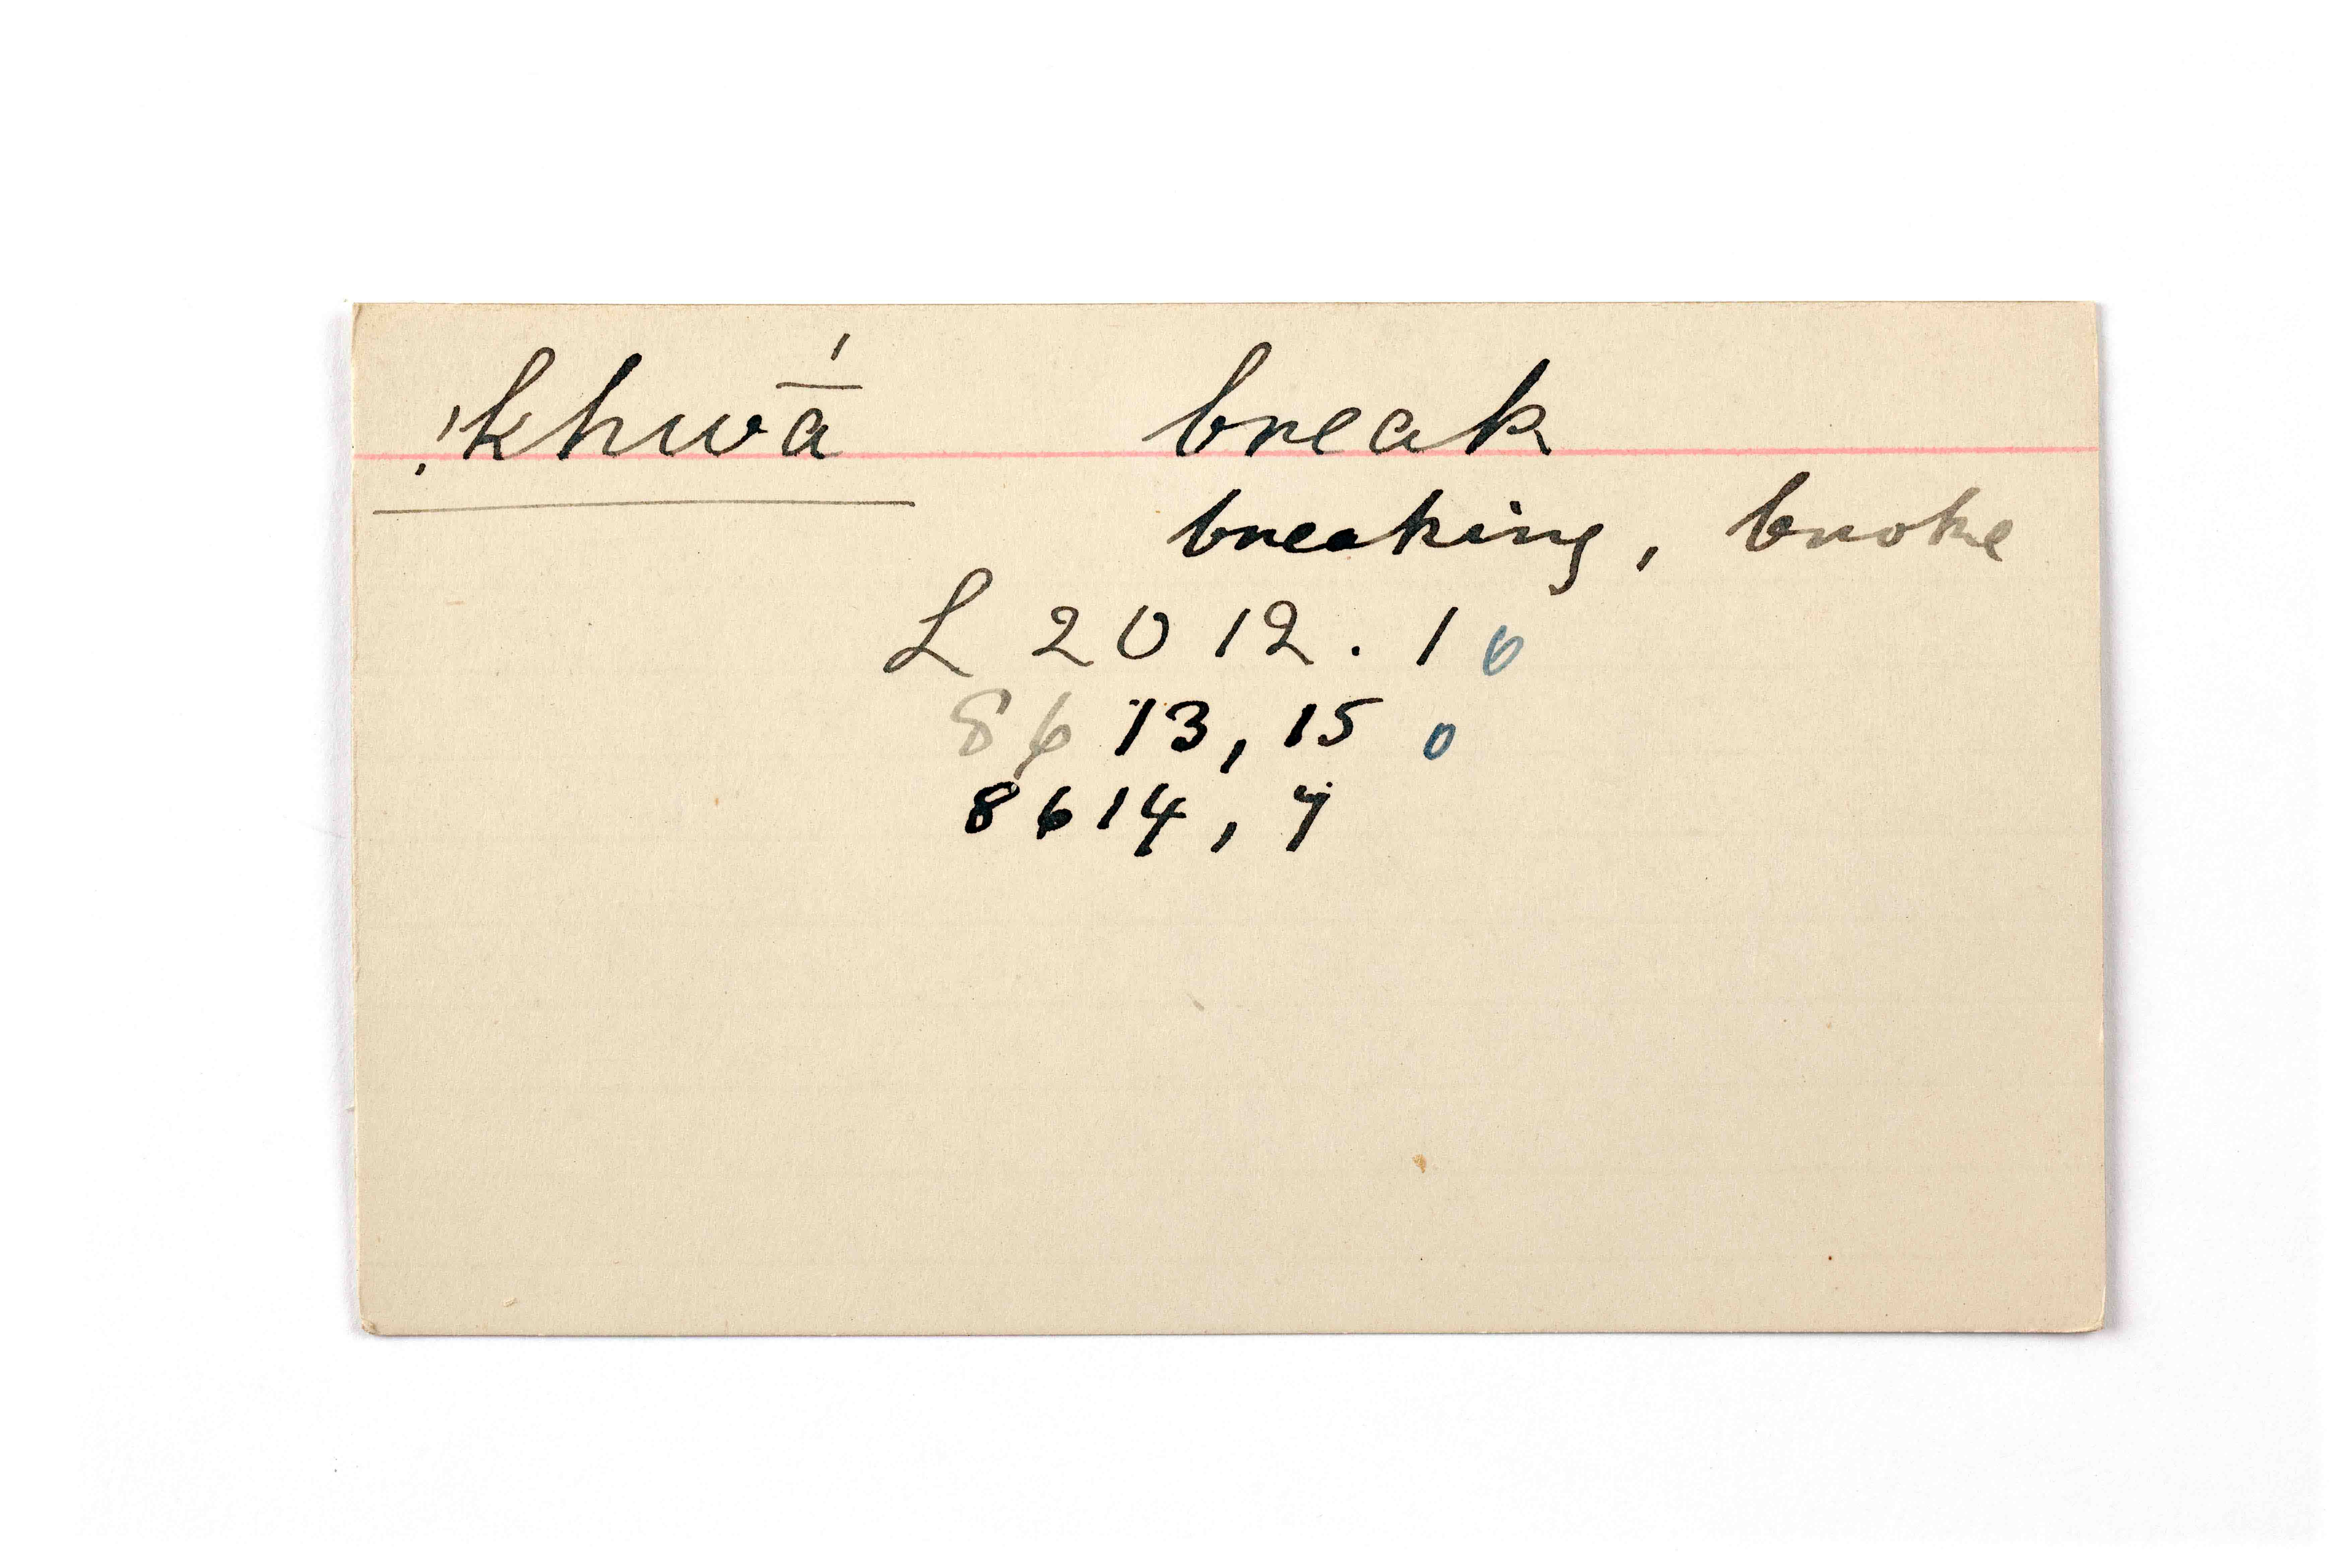 !khwā́ break
breaking, broke
L 2012.1 0
8613, 15 0
8614, 7